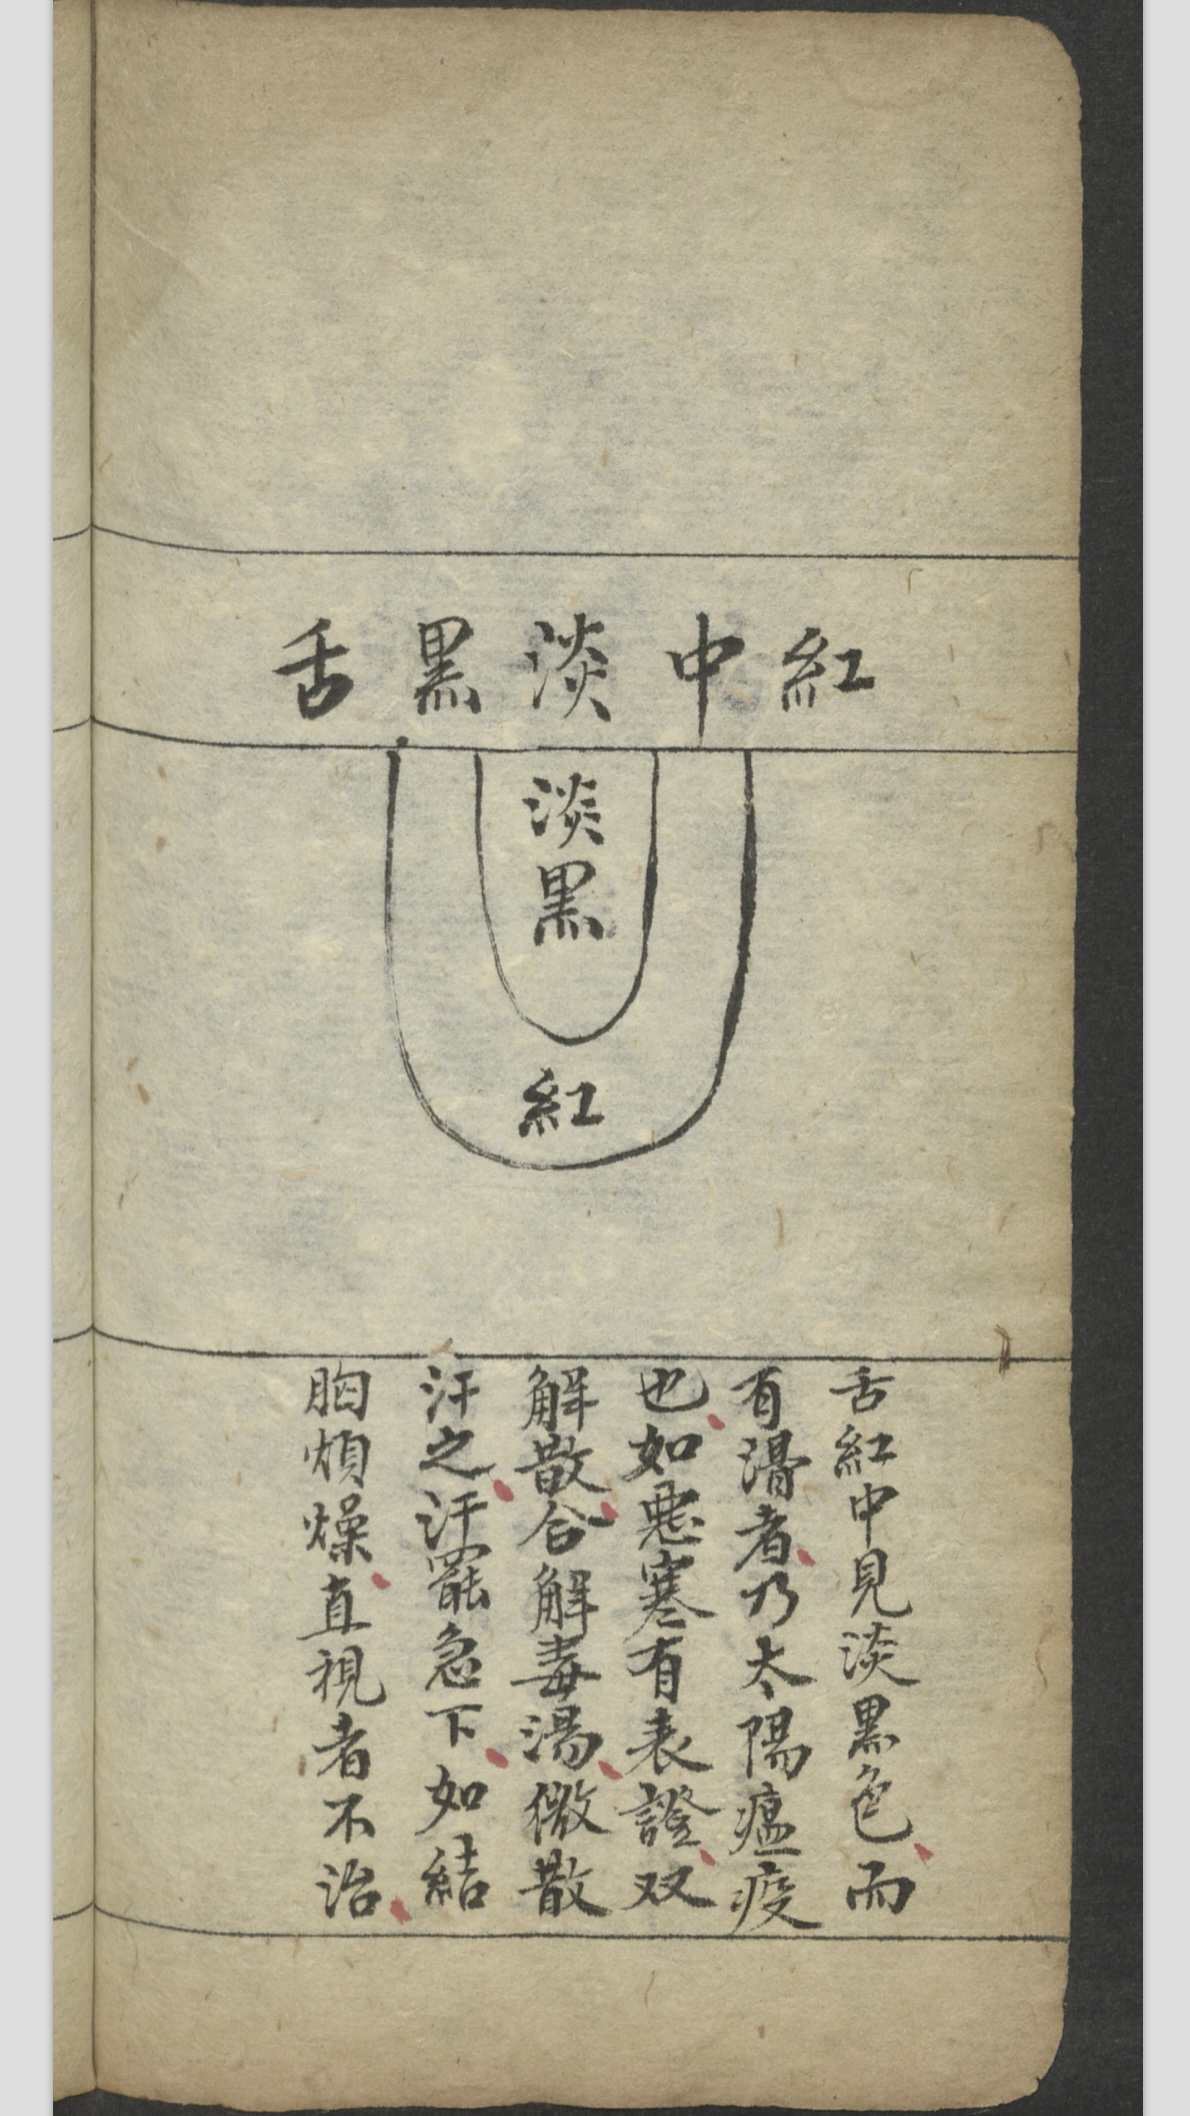 紅中淡黒舌
淡黒
紅
舌紅中見淡黒色而
有滑者乃太陽瘟疫
也如惡寒有表證双
解散合解毒湯微散
汗之汗罷急下如結
胸煩燥直視者不治